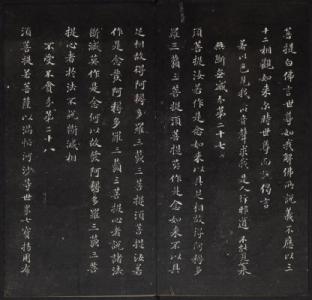 菩提白佛言世尊如我解佛所說義不應以三
十二相觀如來尔時世尊而說偈言
若以色見我以音聲求我是人行邪道不能見如來
無斷無滅分第二十七
須菩提汝若作是念如來不以具足相故得阿耨多
羅三藐三菩提須菩提莫作是念如來不以具
足相故得阿耨多羅三藐三菩提須菩提汝若
作是念發阿耨多羅三藐三菩提心者說諸法
斷滅莫作是念何以故發阿耨多羅三藐三菩
提心者於法不說斷滅相
不受不貪分第二十八
須菩提若菩薩以滿恒河沙等世界七寶持用布